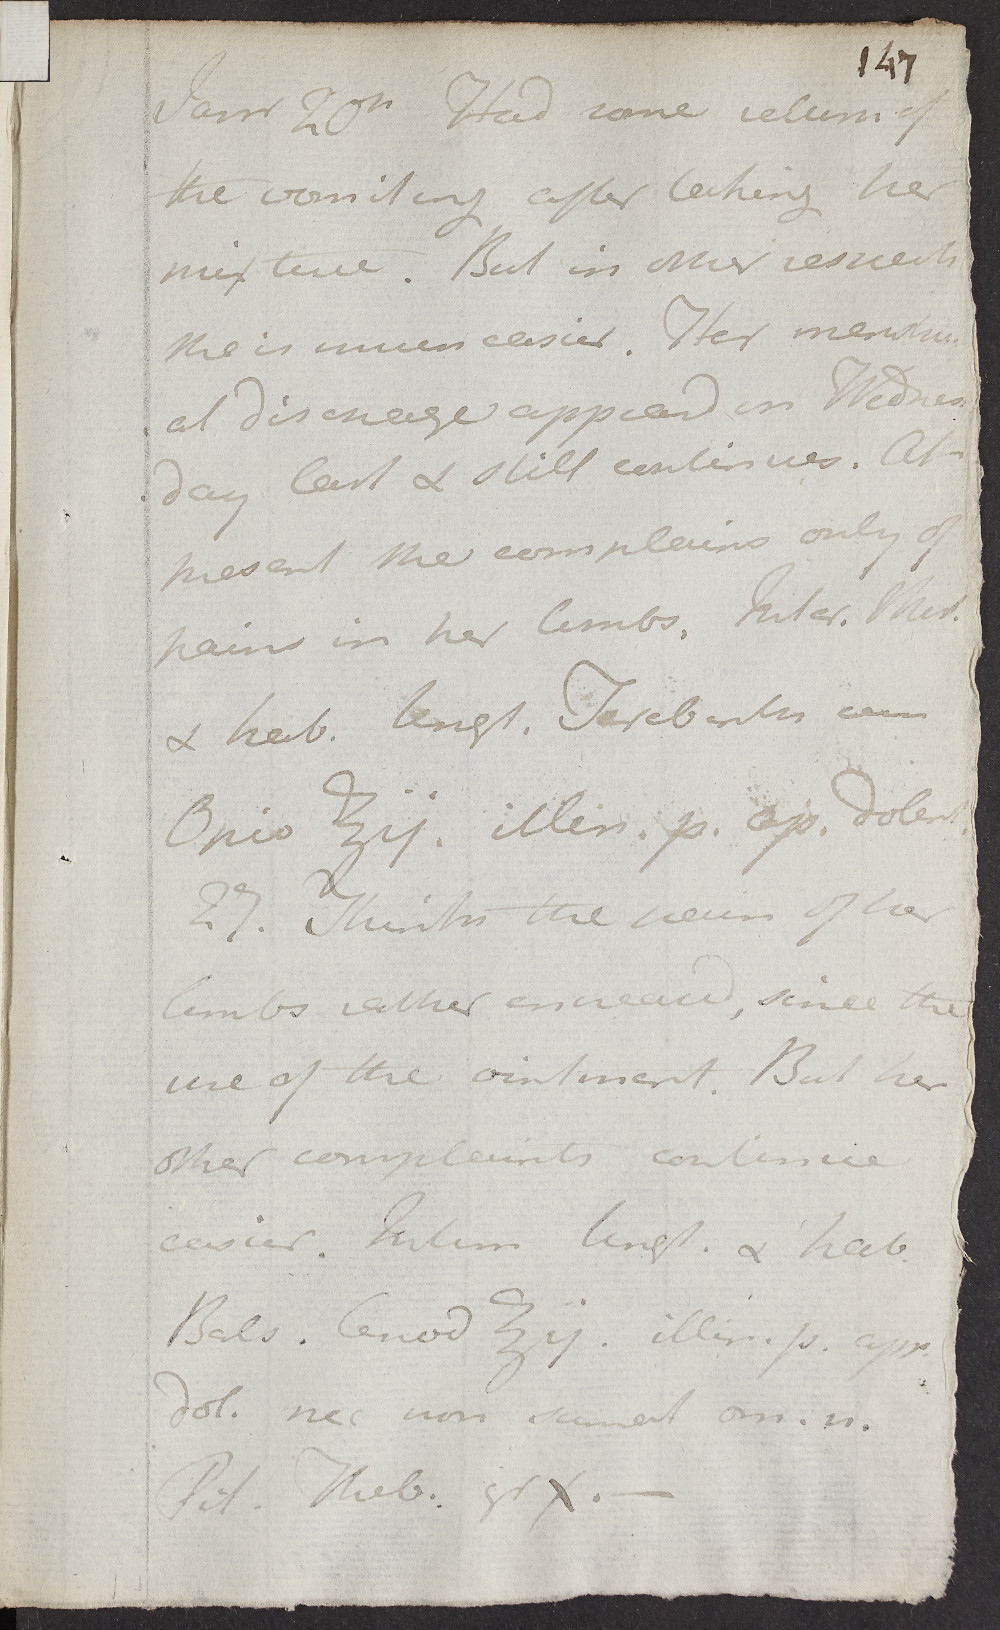 147
Janr 20th Had some return of
the vomiting after taking her
mixture. But in other respects
she is much easier. Her menstru
al discharge appeard on Wednes
day last & still continues. At
present she complains only of
pains in her limbs. Inter. Mist.
& hab. Ungt. Terebinth cum
Opio ℥ij. illin. p. ap. dolent.
27. Thinks the pains of her
limbs rather encreased, since the
use of the ointment. But her
other complaints continue
easier. Interm Ungt. & hab.
Bals. Anod ℥ij. illin. p. app.
dol. nec non sumat om. n.
Pil. Theb. gr X. —